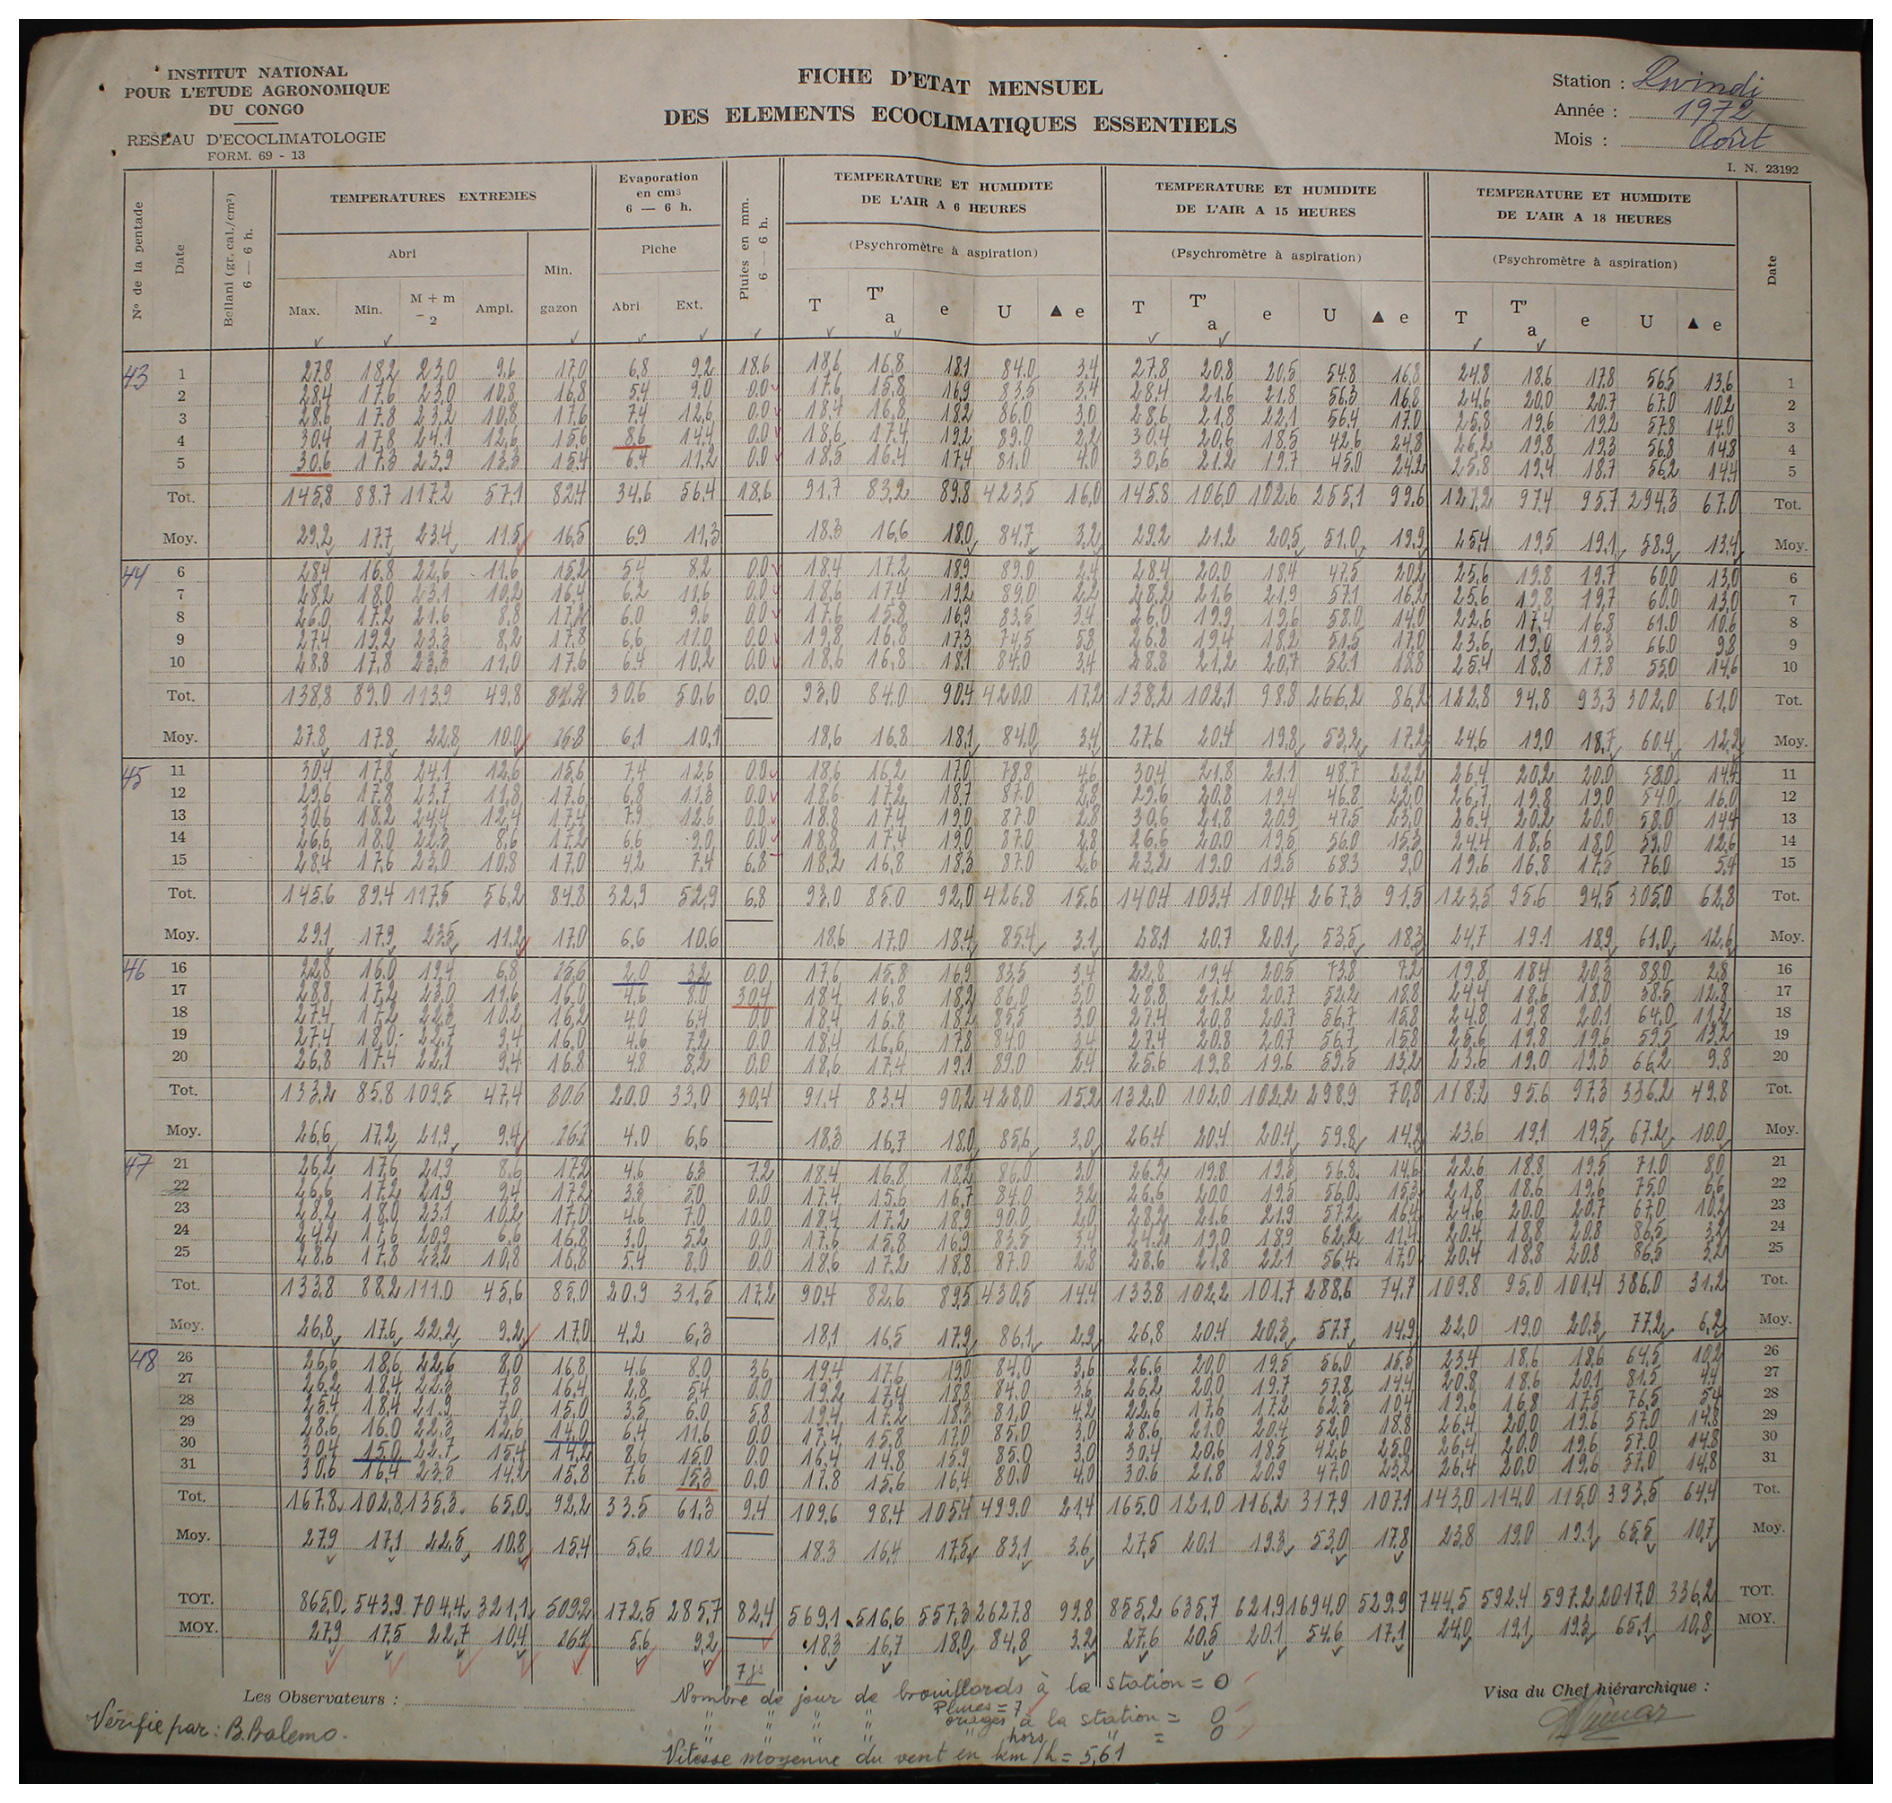 INSTITUT NATIONAL
POUR L'ETUDE AGRONOMIQUE
DU CONGO
RESEAU D'ECOCLIMATOLOGIE
FORM. 69 - 13
FICHE D'ETAT MENSUEL
DES ELEMENTS ECOCLIMATIQUES ESSENTIELS
Station : Rwindi
Année : 1972
Mois : Août
I. N. 23192
N° de la pentade
Date
Bellani (gr. cal./cm²) 6 — 6 h.
TEMPERATURES EXTREMES
Abri
Max. Min. M + m / 2 Ampl.
Min. gazon
Evaporation en cm³ 6 — 6 h.
Piche
Abri Ext.
Pluies en mm. 6 — 6 h.
TEMPERATURE ET HUMIDITE DE L'AIR A 6 HEURES
(Psychromètre à aspiration)
T T'a e U ▲ e
TEMPERATURE ET HUMIDITE DE L'AIR A 15 HEURES
(Psychromètre à aspiration)
T T'a e U ▲ e
TEMPERATURE ET HUMIDITE DE L'AIR A 18 HEURES
(Psychromètre à aspiration)
T T'a e U ▲ e
Date
43 1 27.8 18,2 23,0 9,6 17,0 6,8 9,2 18.6 18,6 16,8 18,1 84.0 3,4 27.8 20,8 20,5 54.8 16,8 24,8 18.6 17.8 56.5 13,6 1
2 28,4 17,6 23,0 10,8 16,8 5,4 9,0 0.0 17,6 15,8 16,9 83,5 3,4 28.4 21,6 21,8 56.3 16,8 24,6 20,0 20.7 67.0 10.2 2
3 28,6 17.8 23,2 10,8 17,6 7,4 12,6 0.0 18,4 16,8 18,2 86.0 3,0 28,6 21,8 22,1 56,4 17.0 25,8 19,6 19,2 57.8 14.0 3
4 30,4 17,8 24,1 12,6 15,6 8,6 14,4 0.0 18,6 17,4 19,2 89.0 2,2 30,4 20,6 18,5 42,6 24,8 26,2 19,8 19,3 56,8 14,8 4
5 30,6 17,3 23,9 13,3 15,4 6,4 11,2 0.0 18,5 16,4 17,4 81,0 4,0 30,6 21,2 19,7 45,0 24,2 25,8 19,4 18.7 56,2 14,4 5
Tot. 145,8 88.7 117,2 57,1 82,4 34,6 56,4 18,6 91,7 83,2 89,8 423,5 16,0 145.8 106,0 102,6 255,1 99,6 127,2 97,4 95,7 294,3 67.0 Tot.
Moy. 29,2 17,7 23,4 11,5 16,5 6,9 11,3 18.3 16,6 18,0 84,7 3,2 29,2 21,2 20,5 51.0 19,9 25,4 19,5 19,1 58,9 13,4 Moy.
44 6 28,4 16,8 22,6 11,6 15,2 5,4 8,2 0.0 18,4 17,2 18,9 89.0 2,4 28,4 20,0 18,4 47,5 20,2 25,6 19,8 19,7 60,0 13,0 6
7 28,2 18,0 23,1 10,2 16,4 6,2 11,6 0.0 18,6 17,4 19,2 89,0 2,2 28,2 21,6 21,9 57,1 16,2 25,6 19,8 19,7 60.0 13,0 7
8 26,0 17,2 21,6 8,8 17,2 6.0 9,6 0.0 17,6 15,8 16,9 83,5 3,4 26,0 19,9 19,6 58.0 14.0 22,6 17,4 16.8 61.0 10,6 8
9 27,4 19,2 23,3 8,2 17,8 6,6 11,0 0.0 19,8 16,8 17,3 74,5 5,8 26.8 19,4 18,2 51,5 17,0 23,6 19,0 19,3 66.0 9,8 9
10 28.8 17,8 23,3 11,0 17,6 6.4 10,2 0.0 18,6 16,8 18,1 84,0 3,4 28.8 21,2 20,7 52,1 18,8 25,4 18,8 17,8 55,0 14,6 10
Tot. 138,8 89,0 113,9 49,8 30,6 50,6 0,0 93,0 84,0 90,4 420,0 17,2 138,2 102,1 98.8 266,2 86,2 122,8 94,8 93,3 302,0 61,0 Tot.
Moy. 27,8 17,8 22,8 10.0 16.8 6,1 10,1 18,6 16,8 18,1 84,0 3,4 27,6 20,4 19,8 53,2 17,2 24,6 19,0 18,7 60.4 12,2 Moy.
45 11 30,4 17,8 24,1 12,6 15,6 7,4 12,6 0.0 18,6 16,2 17,0 78,8 4,6 30,4 21,8 21,1 48.7 22,2 26,4 20,2 20,0 58.0 14,4 11
12 29,6 17.8 23,7 11,8 17,6 6,8 11,3 0.0 18,6 17,2 18,7 87,0 2,8 29,6 20,8 19,4 46.8 22,0 26,7 19,8 19,0 54,0 16,0 12
13 30,6 18,2 24,4 12,4 17,4 7,9 12,6 0.0 18,8 17,4 19,0 87.0 2,8 30,6 21,8 20,9 47,5 23,0 26,4 20,2 20,0 58.0 14,4 13
14 26,6 18,0 22,3 8,6 17,2 6,6 9,0 0.0 18,8 17,4 19,0 87.0 2,8 26,6 20,0 19,5 56.0 15,3 24,4 18,6 18,0 59,0 12,6 14
15 28,4 17,6 23,0 10,8 17,0 4,2 7,4 6,8 18,2 16,8 18,3 87.0 2,6 23,2 19,0 19,5 68,3 9,0 19,6 16,8 17,5 76.0 5,4 15
Tot. 145,6 89,4 117,5 56,2 84,8 32,9 52,9 6,8 93,0 85.0 92,0 426,8 15,6 140,4 103,4 100,4 267,3 91,5 123,5 95,6 94,5 305,0 62,8 Tot.
Moy. 29,1 17,9 23,5 11,2 17,0 6,6 10,6 18,6 17,0 18,4 85,4 3,1 28,1 20,7 20,1 53,5 18,3 24,7 19,1 18,9 61,0 12,6 Moy.
46 16 22,8 16,0 19,4 6,8 15,6 2,0 3,2 0,0 17,6 15,8 16,9 83,5 3,4 22,8 19,4 20,5 73,8 7,2 19,8 18,4 20,3 88,0 2,8 16
17 28,8 17,2 23,0 11,6 16,0 4,6 8,0 30,4 18,4 16,8 18,2 86,0 3,0 28.8 21,2 20,7 52,2 18,8 24,4 18,6 18,0 58,5 12,8 17
18 27,4 17,2 22,3 10,2 16,2 4,0 6,4 0,0 18,4 16,8 18,2 85,5 3,0 27,4 20,8 20,7 56,7 15,8 24,8 19,8 20,1 64,0 11,2 18
19 27,4 18,0 22,7 9,4 16.0 4,6 7,2 0,0 18,4 16,6 17,8 84,0 3,4 27,4 20,8 20,7 56,7 15,8 25,6 19,8 19,6 59,5 13,2 19
20 26,8 17,4 22,1 9,4 16,8 4,8 8,2 0,0 18,6 17,4 19,1 89,0 2,4 25,6 19,8 19,6 59,5 13,2 23,6 19,0 19,3 66,2 9,8 20
Tot. 133,2 85,8 109,5 47,4 80,6 20,0 33,0 30,4 91,4 83,4 90,2 428,0 15,2 132,0 102,0 102,2 298,9 70,8 118,2 95,6 97,3 336,2 49,8 Tot.
Moy. 26,6 17,2 21,9 9,4 4,0 6,6 18,3 16,7 18,0 85,6 3,0 26,4 20,4 20,4 59,8 14,2 23,6 19,1 19,5 67,2 10,0 Moy.
47 21 26,2 17,6 21,9 8,6 17,2 4,6 6,3 7,2 18,4 16,8 18,2 86,0 3,0 26,2 19,8 19,3 56.8 14,6 22,6 18,8 19,5 71,0 8,0 21
22 26,6 17,2 21,9 9,4 17,2 3,3 5,0 0,0 17,4 15,6 16,7 84,0 3,2 26,6 20,0 19,5 56,0 15,3 21,8 18,6 19,6 75,0 6,6 22
23 28,2 18,0 23,1 10,2 17,0 4,6 7,0 10,0 18,4 17,2 18,9 90,0 2,0 28,2 21,6 21,9 57,2 16,4 24,6 20,0 20,7 67,0 10,2 23
24 24,2 17,6 20,9 6,6 16,8 3,0 5,2 0,0 17,6 15,8 16,9 83,5 3,4 24,2 19,0 18,9 62,2 11,4 20,4 18,8 20,8 86,5 3,2 24
25 28,6 17,8 23,2 10,8 16,8 5,4 8,0 0,0 18,6 17,2 18,8 87,0 2,8 28.6 21,8 22,1 56,4 17,0 20,4 18,8 20,8 86,5 3,2 25
Tot. 133,8 88,2 111,0 45,6 85,0 20,9 31,5 17,2 90,4 82,6 89,5 430,5 14,4 133,8 102,2 101,7 288,6 74,7 109,8 95,0 101,4 386,0 31,2 Tot.
Moy. 26,8 17,6 22,2 9,2 17,0 4,2 6,3 18,1 16,5 17,9 86,1 2,9 26,8 20,4 20,3 57,7 14,9 22,0 19,0 20,3 77,2 6,2 Moy.
48 26 26,6 18,6 22,6 8,0 16,8 4,6 8,0 3,6 19,4 17,6 19,0 84,0 3,6 26,6 20,0 19,5 56,0 15,3 23,4 18,6 18,6 64,5 10,2 26
27 26,2 18,4 22,3 7,8 16,4 2,8 5,4 0,0 19,2 17,4 18,8 84,0 3,6 26,2 20,0 19,7 57,8 14,4 20,8 18,6 20,1 81,5 4,4 27
28 25,4 18,4 21,9 7,0 15,0 3,5 6,0 5,8 19,4 17,2 18,3 81,0 4,2 22,6 17,6 17,2 62,5 10,4 19,6 16,8 17,5 76,5 5,4 28
29 28,6 16,0 22,3 12,6 14,0 6,4 11,6 0,0 17,4 15,8 17,0 85,0 3,0 28,6 21,0 20,4 52,0 18,8 26,4 20,0 19,6 57,0 14,8 29
30 30,4 15,0 22,7 15,4 14,2 8,6 15,0 0.0 16,4 14,8 15,9 85,0 3,0 30,4 20,6 18,5 42,6 25,0 26,4 20,0 19,6 57,0 14,8 30
31 30,6 16,4 23,5 14,2 15,8 7,6 15,3 0,0 17,8 15,6 16,4 80,0 4,0 30,6 21,8 20,9 47,0 23,2 26,4 20,0 19,6 57,0 14,8 31
Tot. 167,8 102,8 135,3 65,0 92,2 33,5 61,3 9,4 109,6 98,4 105,4 499,0 21,4 165,0 121,0 116,2 317,9 107,1 143,0 114,0 115,0 393,5 64,4 Tot.
Moy. 27,9 17,1 22,5 10,8 15,4 5,6 10,2 18,3 16,4 17,5 83,1 3,6 27,5 20,1 19,3 53,0 17,8 23,8 19,0 19,1 65,5 10,7 Moy.
TOT. 865,0 543,9 704,4 321,1 509,2 172,5 285,7 82,4 569,1 516,6 557,3 2627,8 99,8 855,2 635,7 621,9 1694,0 529,9 744,5 592,4 597,2 2017,0 336,2 TOT.
MOY. 27,9 17,5 22,7 10,4 16,4 5,6 9,2 18,3 16,7 18,0 84,8 3,2 27,6 20,5 20,1 54,6 17,1 24,0 19,1 19,3 65,1 10,8 MOY.
7 js
Les Observateurs :
Nombre de jour de brouillards à la station = 0
Pluies = 7
" " " " orages à la station = 0
" " " " " hors " = 0
Vitesse moyenne du vent en km/h = 5,61
Vérifié par : B. Balemo.
Visa du Chef hiérarchique :